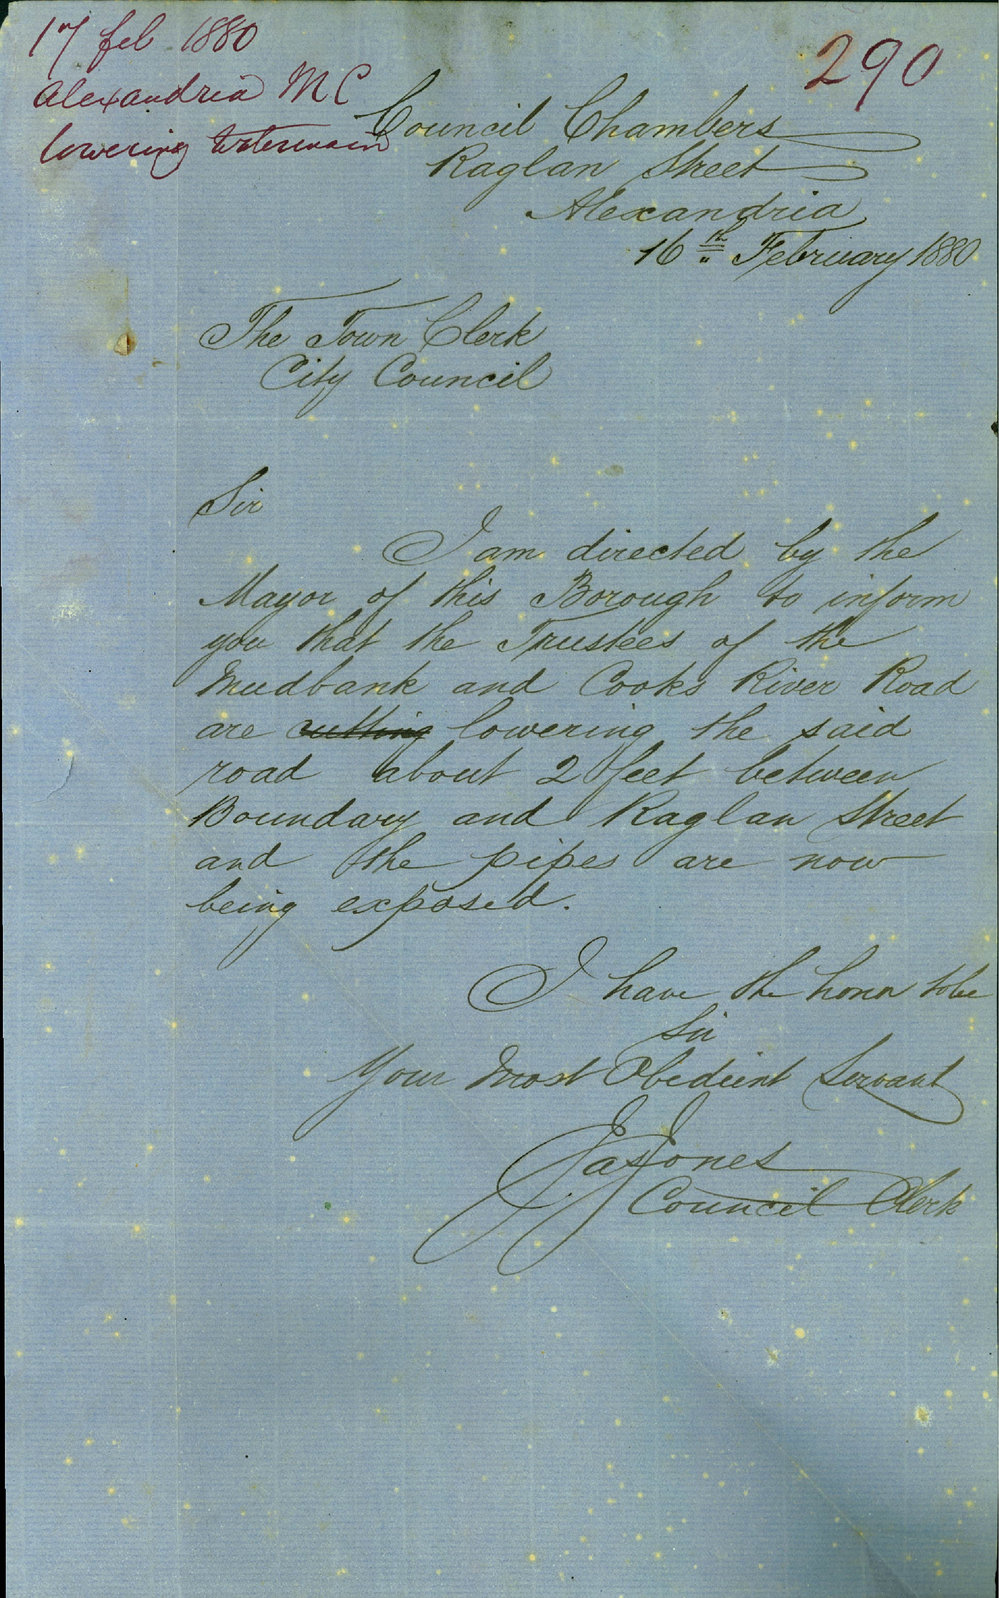 17 feb 1880
Alexandria MC
lowering Watermain
290
Council Chambers
Raglan Street
Alexandria
16th February 1880
The Town Clerk
City Council
Sir
I am directed by the
Mayor of this Borough to inform
you that the Trustees of the
Mudbank and Cooks River Road
are cutting lowering the said
road about 2 feet between
Boundary and Raglan Street
and the pipes are now
being exposed.
I have the honor to be
Sir
Your Most Obedient Servant
Jas Jones
Council Clerk